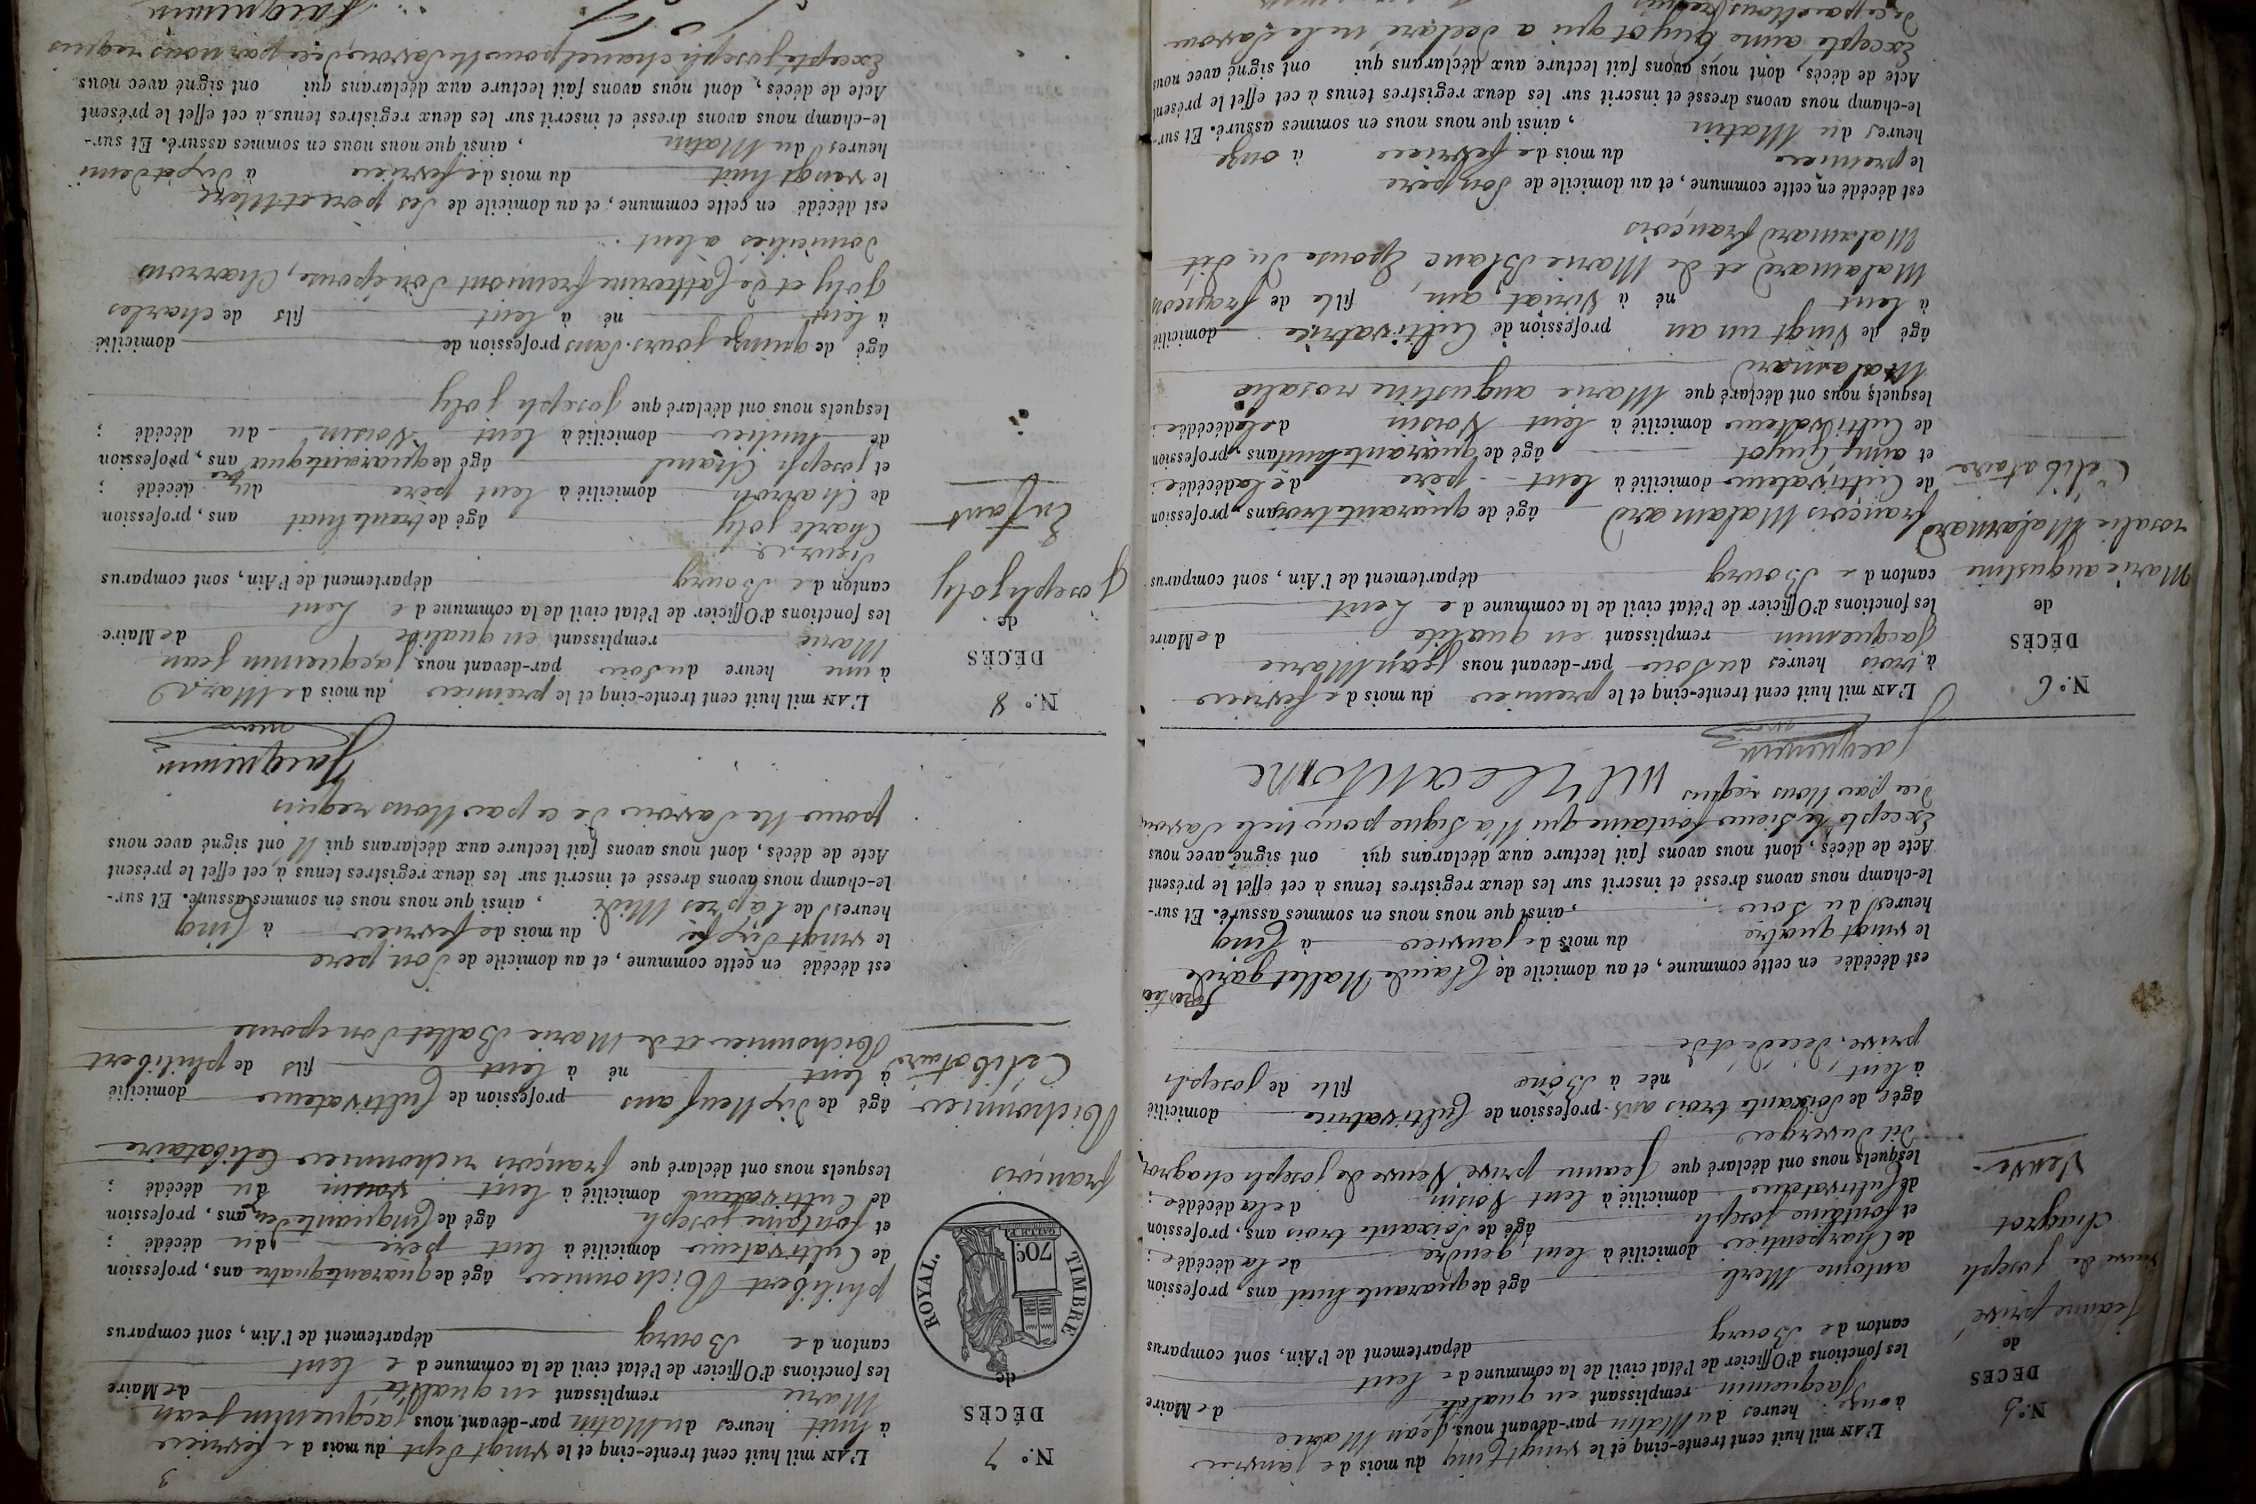 N.º 5
DÉCÈS
de
jeanne privé
veuve de joseph
chagrot
Veuve
L'AN mil huit cent trente-cinq et le vingt Cinq du mois de janvier
à onze heures du Matin par-devant nous, jean Marie
jacquemin remplissant en qualité de Maire
les fonctions d'Officier de l'état civil de la commune de lent
canton de Bourg département de l'Ain, sont comparus
antoine Merle âgé de quarante huit ans, profession
de Charpentier domicilié à lent, gendre de la décédée ;
et fontaine joseph âgé de Soixante trois ans, profession
de Cultivateur domicilié à lent Voisin de la décédée ;
lesquels nous ont déclaré que jeanne privé Veuve de joseph chagrot
dit duverger
âgée de Soixante trois ans profession de Cultivatrice domicilié
à lent née à fille de joseph
privé, décédé et de
est décédée en cette commune, et au domicile de Claude Mallet garde
forestier
le vingt quatre du mois de janvier à Cinq
heures du Soir, ainsi que nous nous en sommes assuré. Et sur-
le-champ nous avons dressé et inscrit sur les deux registres tenus à cet effet le présent
Acte de décès, dont nous avons fait lecture aux déclarans qui ont signé avec nous
Excepté le Sieur fontaine qui N'a Signé pour ne le Savoir
de ce par Nous requis
jacquemin
maire
N.º 6
DÉCÈS
de
Marie augustine
rosalie Malamard
Célibataire
L'AN mil huit cent trente-cinq et le premier du mois de fevrier
à trois heures du Soir par-devant nous jean Marie
jacquemin remplissant en qualité de Maire
les fonctions d'Officier de l'état civil de la commune de Lent
canton de Bourg département de l'Ain, sont comparus
françois Malamard âgé de quarante trois ans, profession
de Cultivateur domicilié à lent père de la décédée ;
et aimé Guyot âgé de quarante huit ans, profession
de Cultivateur domicilié à lent Voisin de la décédée ;
lesquels nous ont déclaré que Marie augustine rosalie
Malamard
âgé de Vingt un an profession de Cultivatrice domicilié
à lent né à Viriat, ain, fille de françois
Malamard et de Marie Blanc Epouse du dit
Malamard françois
est décédée en cette commune, et au domicile de Son père
le premier du mois de fevrier à onze
heures du Matin, ainsi que nous nous en sommes assuré. Et sur-
le-champ nous avons dressé et inscrit sur les deux registres tenus à cet effet le présent
Acte de décès, dont nous avons fait lecture aux déclarans qui ont signé avec nous
Excepté aimé Guyot qui a déclaré ne le Savoir
de ce par Nous requis
3
N.º 7
DÉCÈS
de
TIMBRE ROYAL.
70c
françois
Nichonnier
Célibataire
L'AN mil huit cent trente-cinq et le vingt Sept du mois de fevrier
à huit heures du Matin par-devant nous, jacquemin jean
Marie remplissant en qualité de Maire
les fonctions d'Officier de l'état civil de la commune de lent
canton de Bourg département de l'Ain, sont comparus
philibert Nichonnier âgé de quarante quatre ans, profession
de Cultivateur domicilié à lent père du décédé ;
et fontaine joseph âgé de Cinquante cinq ans, profession
de Cultivateur domicilié à lent voisin du décédé ;
lesquels nous ont déclaré que françois nichonnier Célibataire
âgé de Dix Neuf ans profession de Cultivateur domicilié
à lent né à lent fils de philibert
Nichonnier et de Marie Ballet Son epouse
est décédé en cette commune, et au domicile de Son père
le vingt Six du mois de fevrier à Cinq
heures de l'après Midi, ainsi que nous nous en sommes assuré. Et sur-
le-champ nous avons dressé et inscrit sur les deux registres tenus à cet effet le présent
Acte de décès, dont nous avons fait lecture aux déclarans qui N'ont signé avec nous
pour Ne Savoir de ce par Nous requis
Jacquemin
maire
N.º 8
DÉCÈS
de
joseph joly
Enfant
L'AN mil huit cent trente-cinq et le premier du mois de Mars
à une heure du Soir par-devant nous, jacquemin jean
Marie remplissant en qualité de Maire
les fonctions d'Officier de l'état civil de la commune de Lent
canton de Bourg département de l'Ain, sont comparus
Sieurs
Charle joly âgé de trente huit ans, profession
de Charron domicilié à lent père du décédé ;
et joseph Chanel âgé de quarante quatre ans, profession
de domicilié à lent Voisin du décédé ;
lesquels nous ont déclaré que joseph joly
âgé de quinze jours Sans profession de domicilié
à lent né à lent fils de charles
joly et de Catherine fremont Son épouse, Charrons
domiciliés a lent
est décédé en cette commune, et au domicile de Ses père et Mère
le vingt huit du mois de fevrier à Dix et demi
heures du Matin, ainsi que nous nous en sommes assuré. Et sur-
le-champ nous avons dressé et inscrit sur les deux registres tenus à cet effet le présent
Acte de décès, dont nous avons fait lecture aux déclarans qui ont signé avec nous
Excepté joseph chanel pour Ne Savoir de ce par nous requis
Jacquemin